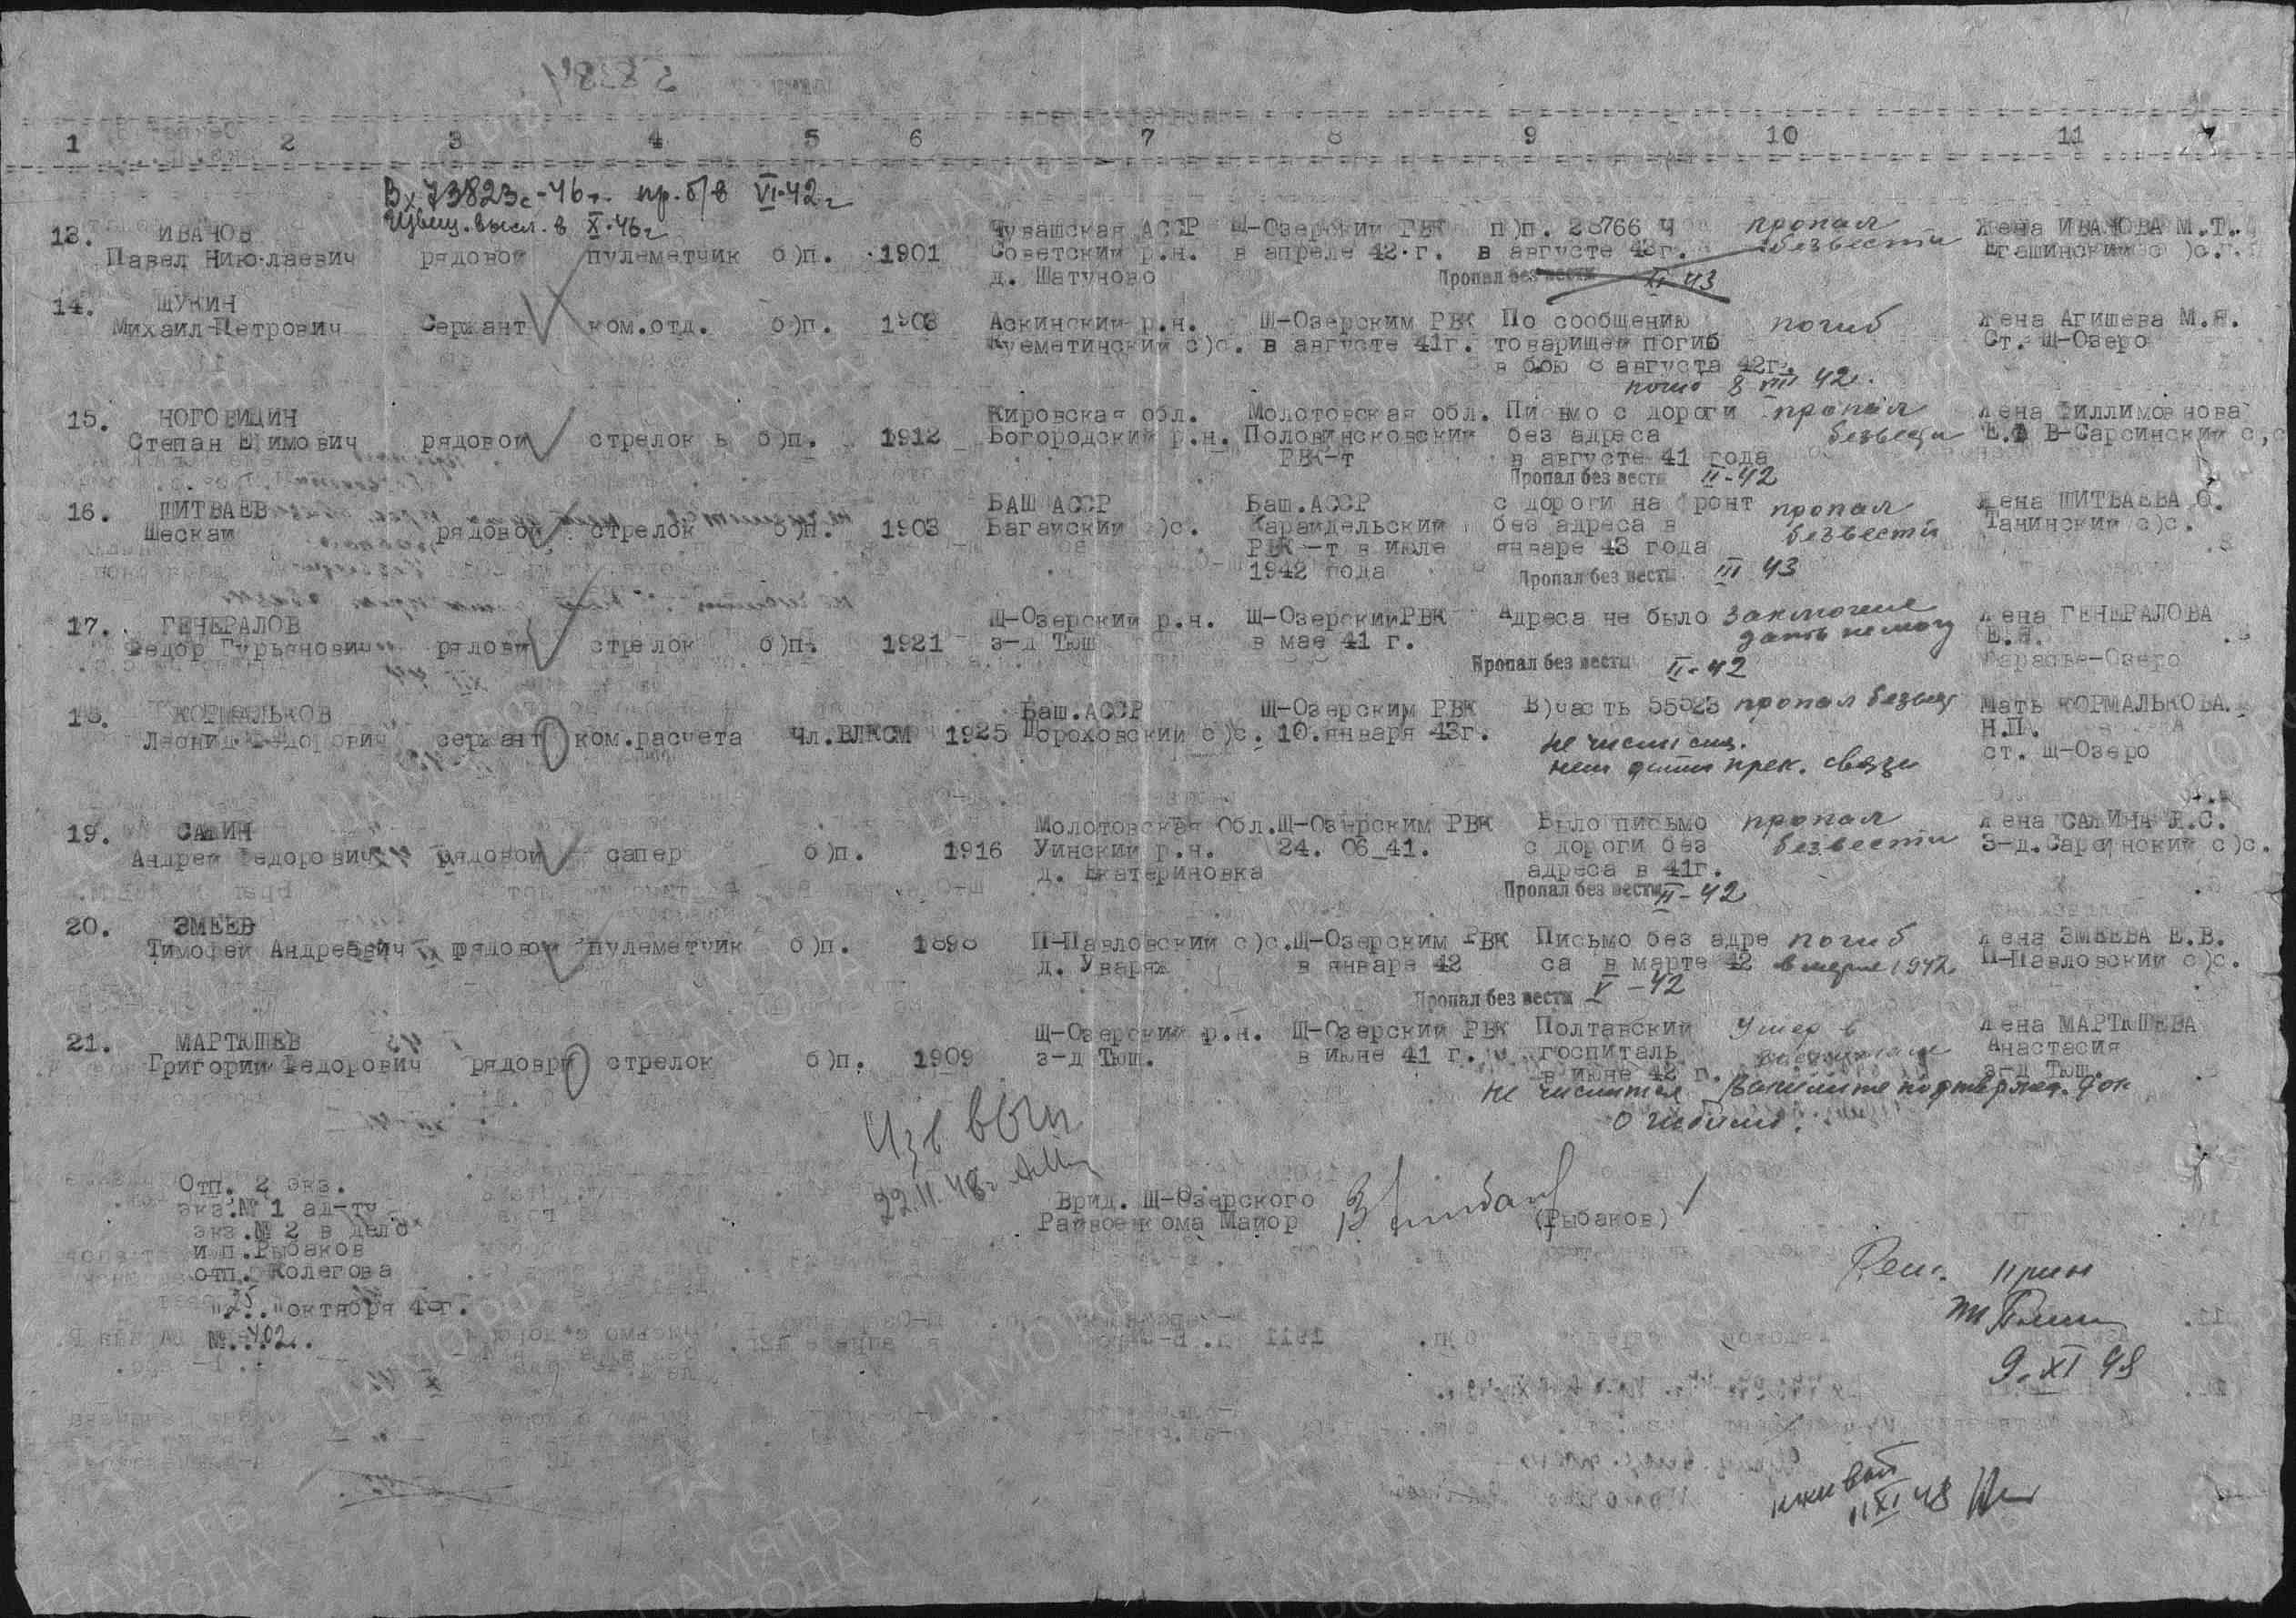 1 2 3 4 5 6 7 8 9 10 11
Вх 73823с-46г. пр. б/в VI-42г
Извещ. высл. в X-46г
13. ИВАНОВ Чувашская АССР Щ-Озерский РВК п)п. 28766 Ч пропал Жена ИВАНОВА М.Т.
Павел Николаевич рядовой пулеметчик б)п. 1901 Советский р.н. в апреле 42.г. в августе 43г. безвести Егашинский с)с.
д. Шатуново Пропал без вести XI 43
14. ЩУКИН
Михаил Петрович Сержант ком.отд. б)п. 1903 Аскинский р.н. Щ-Озерским РВК По сообщению погиб жена Агишева М.Я.
Куеметинский с)с. в августе 41г. товарищей погиб Ст. Щ-Озеро
в бою 8 августа 42г.
погиб 8 VIII 42г.
15. НОГОВИЦИН Кировская обл. Молотовская обл. Письмо с дороги пропал Жена Филлимонова
Степан Ефимович рядовой стрелок б)п. 1912 Богородский р.н. Половинсковский без адреса безвести Е.Ф В-Сарсинский с,с
РВК-т в августе 41 года
Пропал без вести II-42
16. ШИТВАЕВ БАШ АССР Баш.АССР с дороги на фронт пропал Жена ШИТВАЕВА О.
Шескай рядовой стрелок б)п. 1903 Багайский с)с. Караидельский без адреса в безвести Танинский с)с.
РВК-т в июле январе 43 года
1942 года Пропал без вести III 43
17. ГЕНЕРАЛОВ Щ-Озерский р.н. Щ-ОзерскийРВК Адреса не было Заключение Жена ГЕНЕРАЛОВА
Федор Гурьянович рядовй стрелок б)п. 1921 з-д Тюш в мае 41 г. дать не могу Е.Я.
Пропал без вести II-42 Карасье-Озеро
18. КОРМАЛЬКОВ Баш.АССР Щ-Озерским РВК В)часть 55523 пропал безвест Мать КОРМАЛЬКОВА.
Леонид Федорович сержант ком.расчета Чл.ВЛКСМ 1925 Шороховский с)с. 10.января 43г. Н.П.
не числится. ст. Щ-Озеро
нет даты прек. связи
19. САЛИН Молотовская Обл. Щ-Озерским РВК Было письмо пропал Жена САЛИНА Л.С.
Андрей Федорович рядовой сапер б)п. 1916 Уинский р.н. 24. 06_41. с дороги без безвести З-д.Сарсинский с)с.
д. Екатериновка адреса в 41г.
Пропал без вести II-42
20. ЗМЕЕВ
Тимофей Андреевич рядовой пулеметчик б)п. 1898 П-Павловский с)с. Щ-Озерским РВК Письмо без адре погиб Жена ЗМЕЕВА Е.В.
д. Уваряж в январе 42 са в марте 42 в марте 1942 П-Павловский с)с.
Пропал без вести V-42
21. МАРТЮШЕВ Щ-Озерский р.н. Щ-Озерский РВК Полтавский Умер в Жена МАРТЮШЕВА
Григорий Федорович рядоври стрелок б)п. 1909 з-д Тюш. в июне 41 г. госпиталь госпитале Анастасия
в июне 42 г. з-д Тюш.
не числится Вышлите подтвержд. док
о гибели.
Изв высл
22.11.48г
Отп. 2 экз.
экз.№ 1 ад-ту
экз.№ 2 в дело
и п.Рыбаков
отп. Колегова
"25" октября 48г.
№ 402.
Врид. Щ-Озерского
Райвоенкома Майор (Рыбаков)
Реш. прин
9. XI 48
11 XI 48